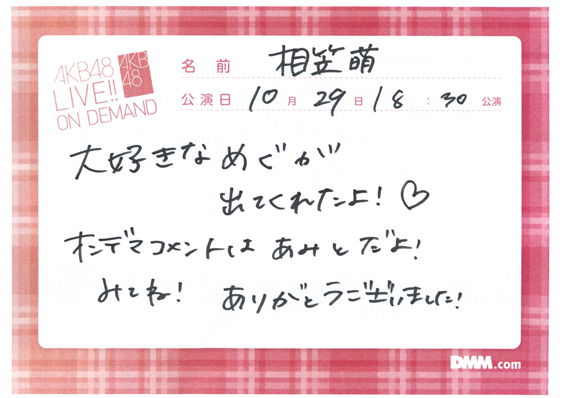 AKB48
LIVE!!
ON DEMAND
AKB
48
名前 相笠萌
公演日 10月29日18:30公演
大好きなめぐが
出てくれたよ!♡
オンデマコメントは あみとだよ!
みてね! ありがとうございました!
DMM.com